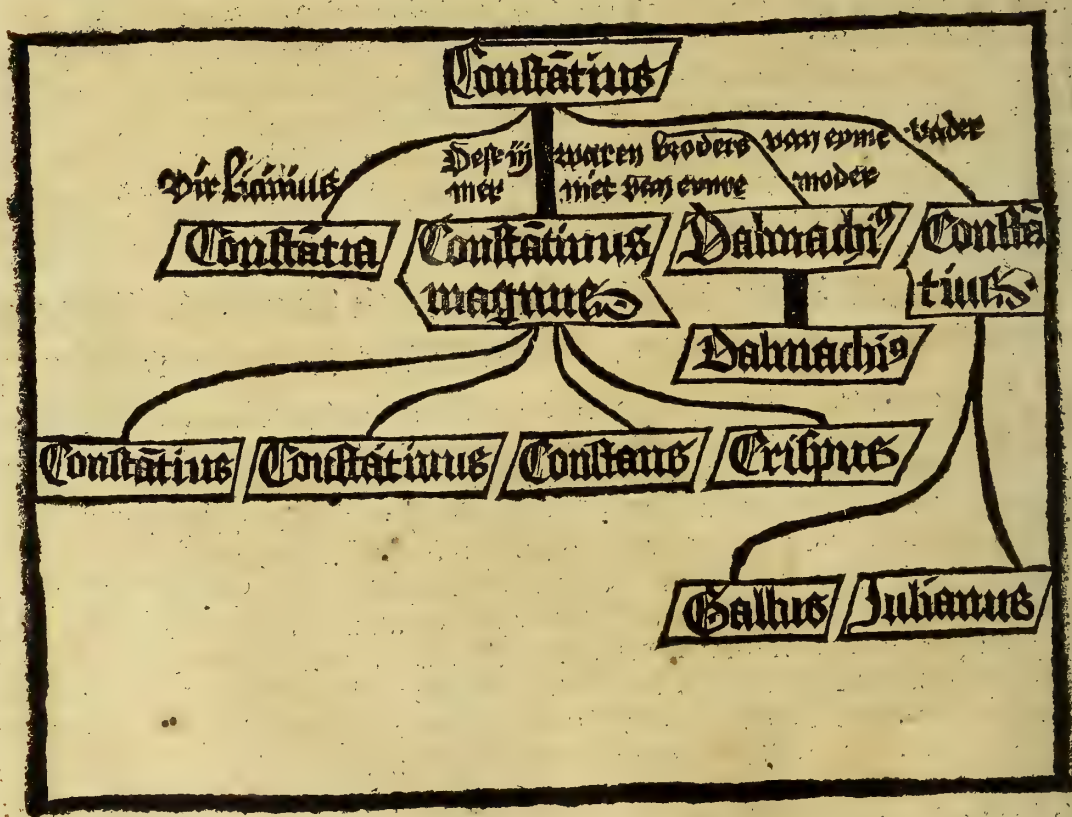 Constātius
Dese iij waren broders van eyme vader
mer niet van eynre moder
vir Licinius
Constātia
Constātinus
magnus
Dalmachiꝰ
Constā
tius
Dalmachiꝰ
Constātius
Constātinus
Constans
Crispus
Gallus
Julianus